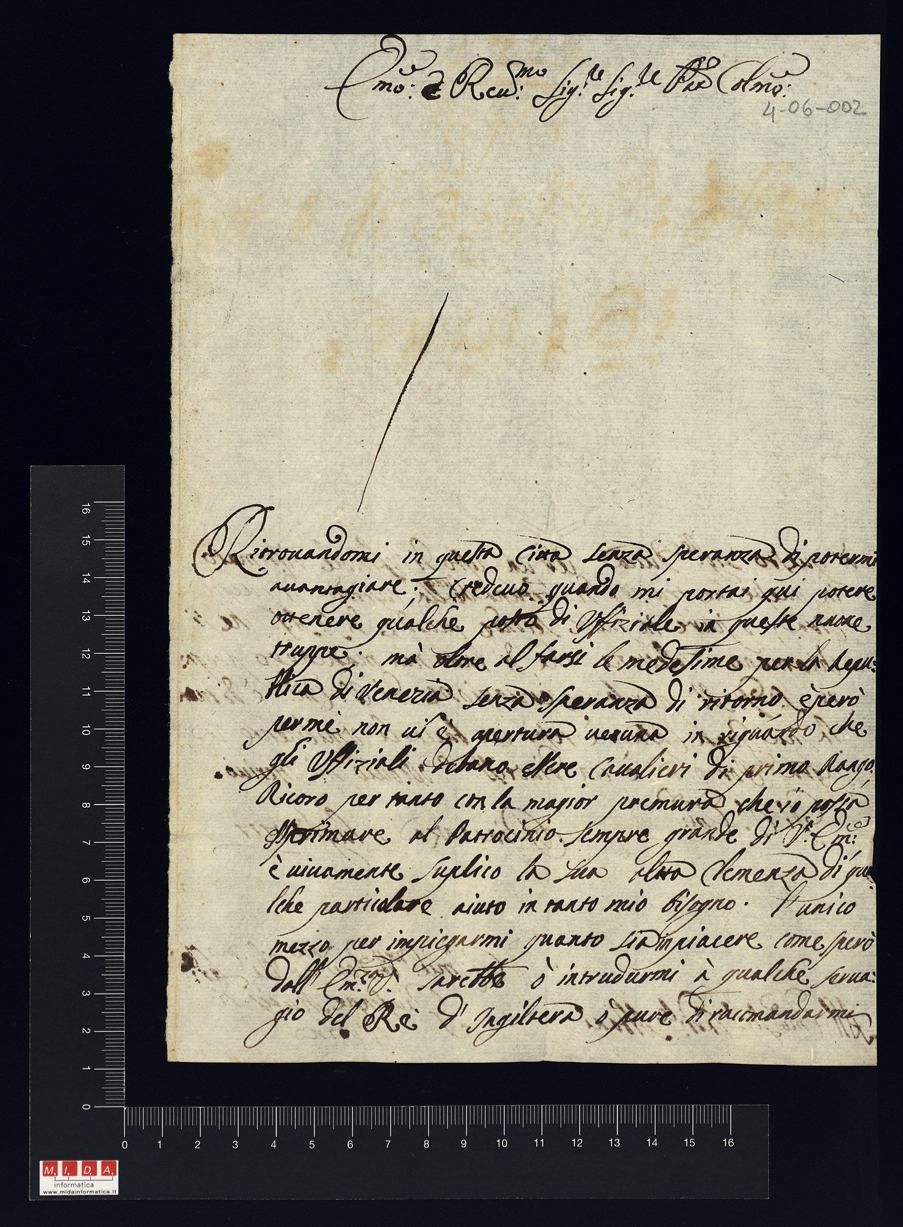 Em:o e Reu:mo Sig:re Sig:re Pad Colmo:
4-06-002
Ritrouandomi in questa Citta senza speranza di potermi
auantagiare; Credeuo quando mi portai qui potere
ottenere qualche posto di Uffiziale in queste nuoue
truppe: mà oltre al farsi le medesime per la Repu:
blica di Venezia senza speranza di ritorno, è però
per me non ui è apertura ueruna in riguardo che
gli Uffiziali debano essere Caualieri di primo Rango,
Ricoro per tanto con la magior premura che io possa
esprimare al Patrocinio sempre grande di V: Em:
è uiuamente suplico la sua alta Clemenza di qua
lche particolare aiuto in tanto mio bisogno. l'unico
mezzo per impiegarmi quanto piacere come sperò
dall' Em: V: sarebbe ò intrudurmi à qualche serua:
gio del Rè d' Ingiltera ò pure di racmandarmi
16
15
14
13
12
11
10
9
8
7
6
5
4
3
2
1
0
0 1 2 3 4 5 6 7 8 9 10 11 12 13 14 15 16
M. I. D. A.
informatica
www.midainformatica.it